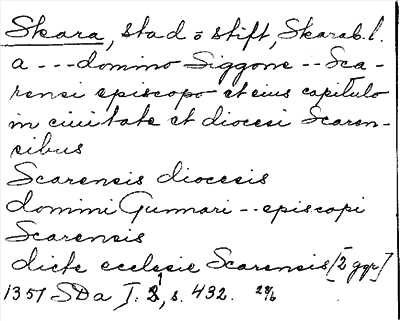 Skara, stad o stift, Skarab.l.
a --- domino Siggone -- Sca-
rensi episcopo et eius capitulo
in ciuitate et diocesi Scaren-
sibus
Scarensis diocesis
domini Gunnari -- episcopi
Scarensis
dicte ecclesie Scarensis [2 ggr]
1351 SDa I. s. 432. 28/6